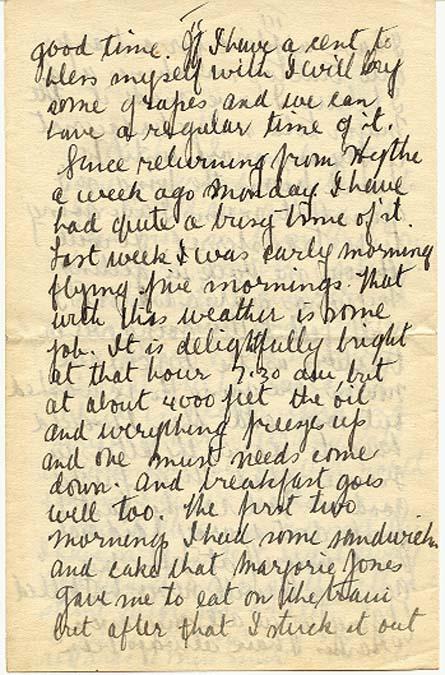 good time. If I have a cent to
bless myself with I will buy
some grapes and we can
have a regular time of it.
Since returning from Hythe
a week ago Monday I have
had quite a busy time of it.
Last week I was early morning
flying five mornings. That
with this weather is some
job. It is delightfully bright
at that hour 7.30 am, but
at about 4000 feet the oil
and everything freezes up
and one must needs come
down. And breakfast goes
well too. The first two
mornings I had some sandwiches
and cake that Marjorie Jones
gave me to eat on the train
but after that I stuck it out